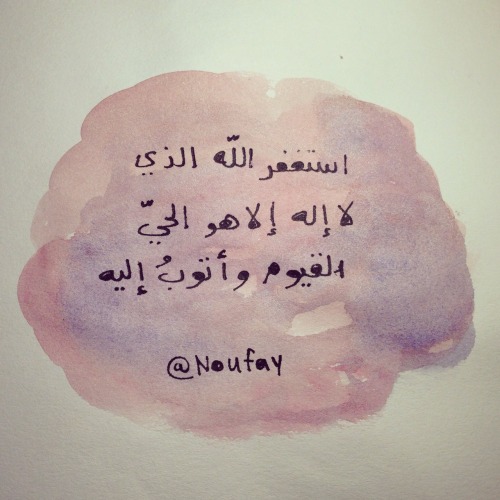 استغفر اللّه الذي
لا إله إلا هو الحيّ
القيوم وأتوبُ إليه
@Noufay